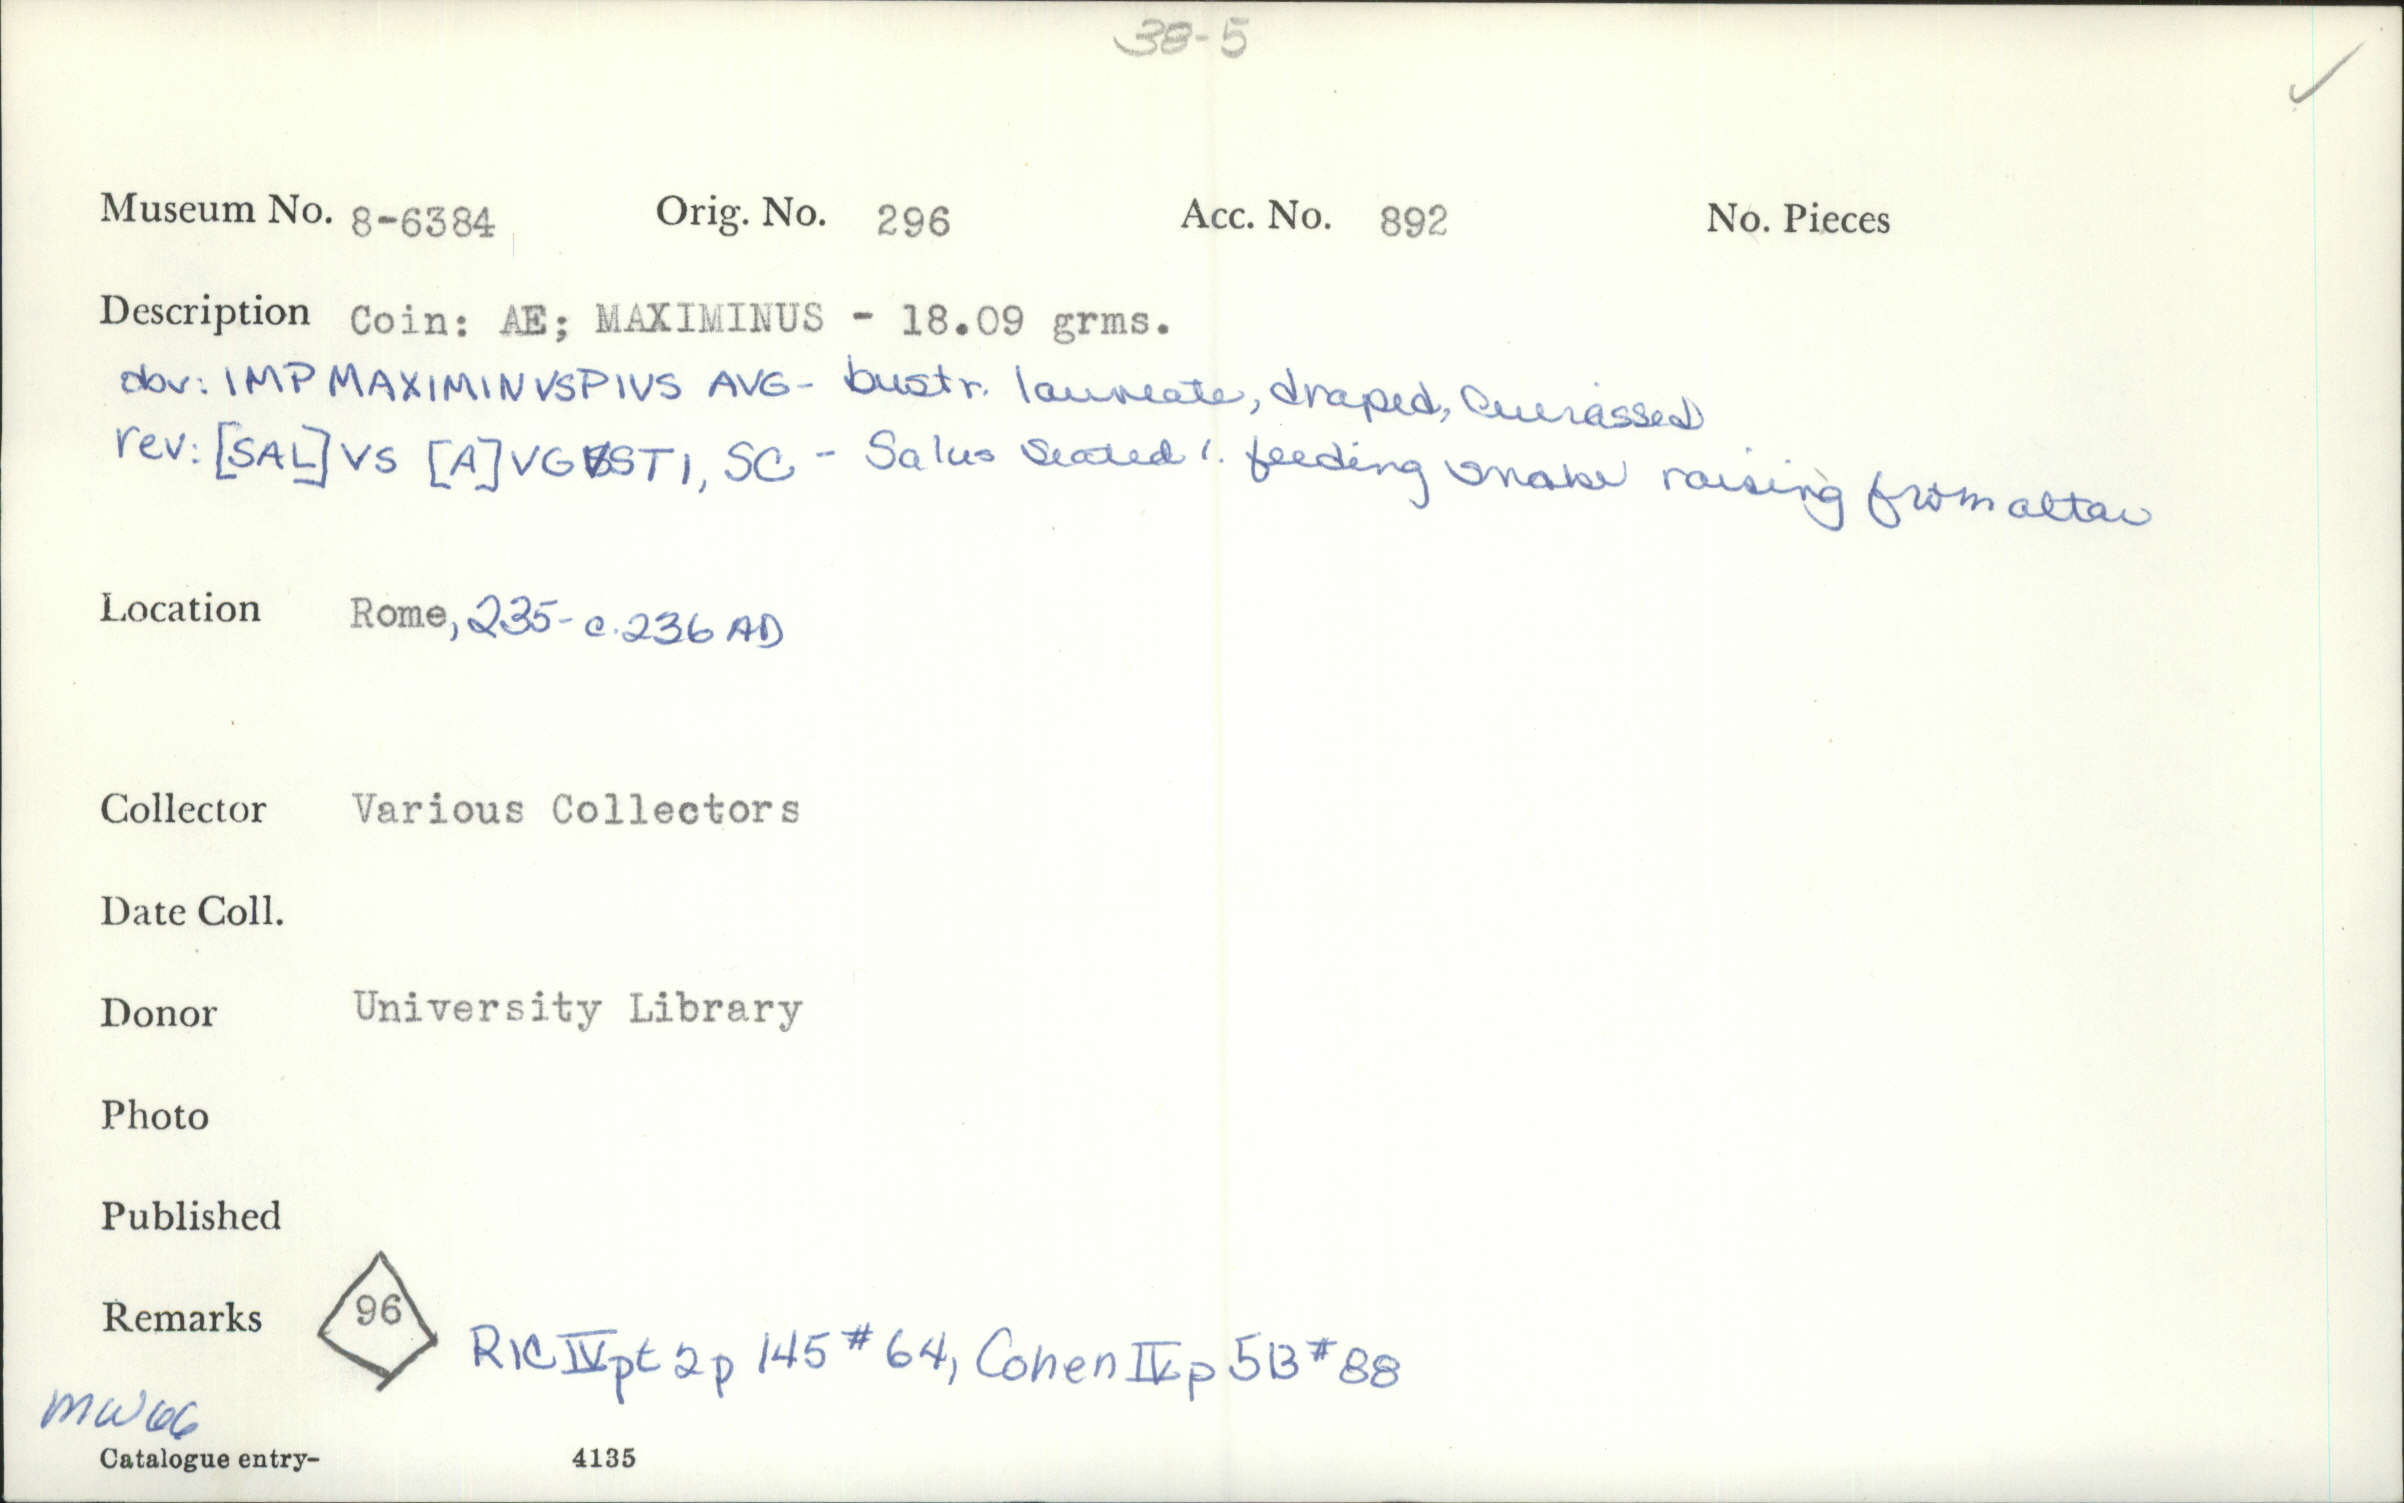 38-5
Museum No. 8-6384 Orig. No. 296 Acc. No. 892 No. Pieces
Description Coin: AE; MAXIMINUS - 18.09 grms.
obv: IMP MAXIMINVSPIVS AVG - bust r. laureate, draped, Cuirassed
rev: [SAL]VS [A]VGVSTI, SC - Salus seated l. feeding snake raising from altar
Location Rome, 235- c. 236 AD
Collector Various Collectors
Date Coll.
Donor University Library
Photo
Published
Remarks 96 RIC IV pt 2 p 145 # 64, Cohen IV p 513 # 88
MW66
Catalogue entry- 4135